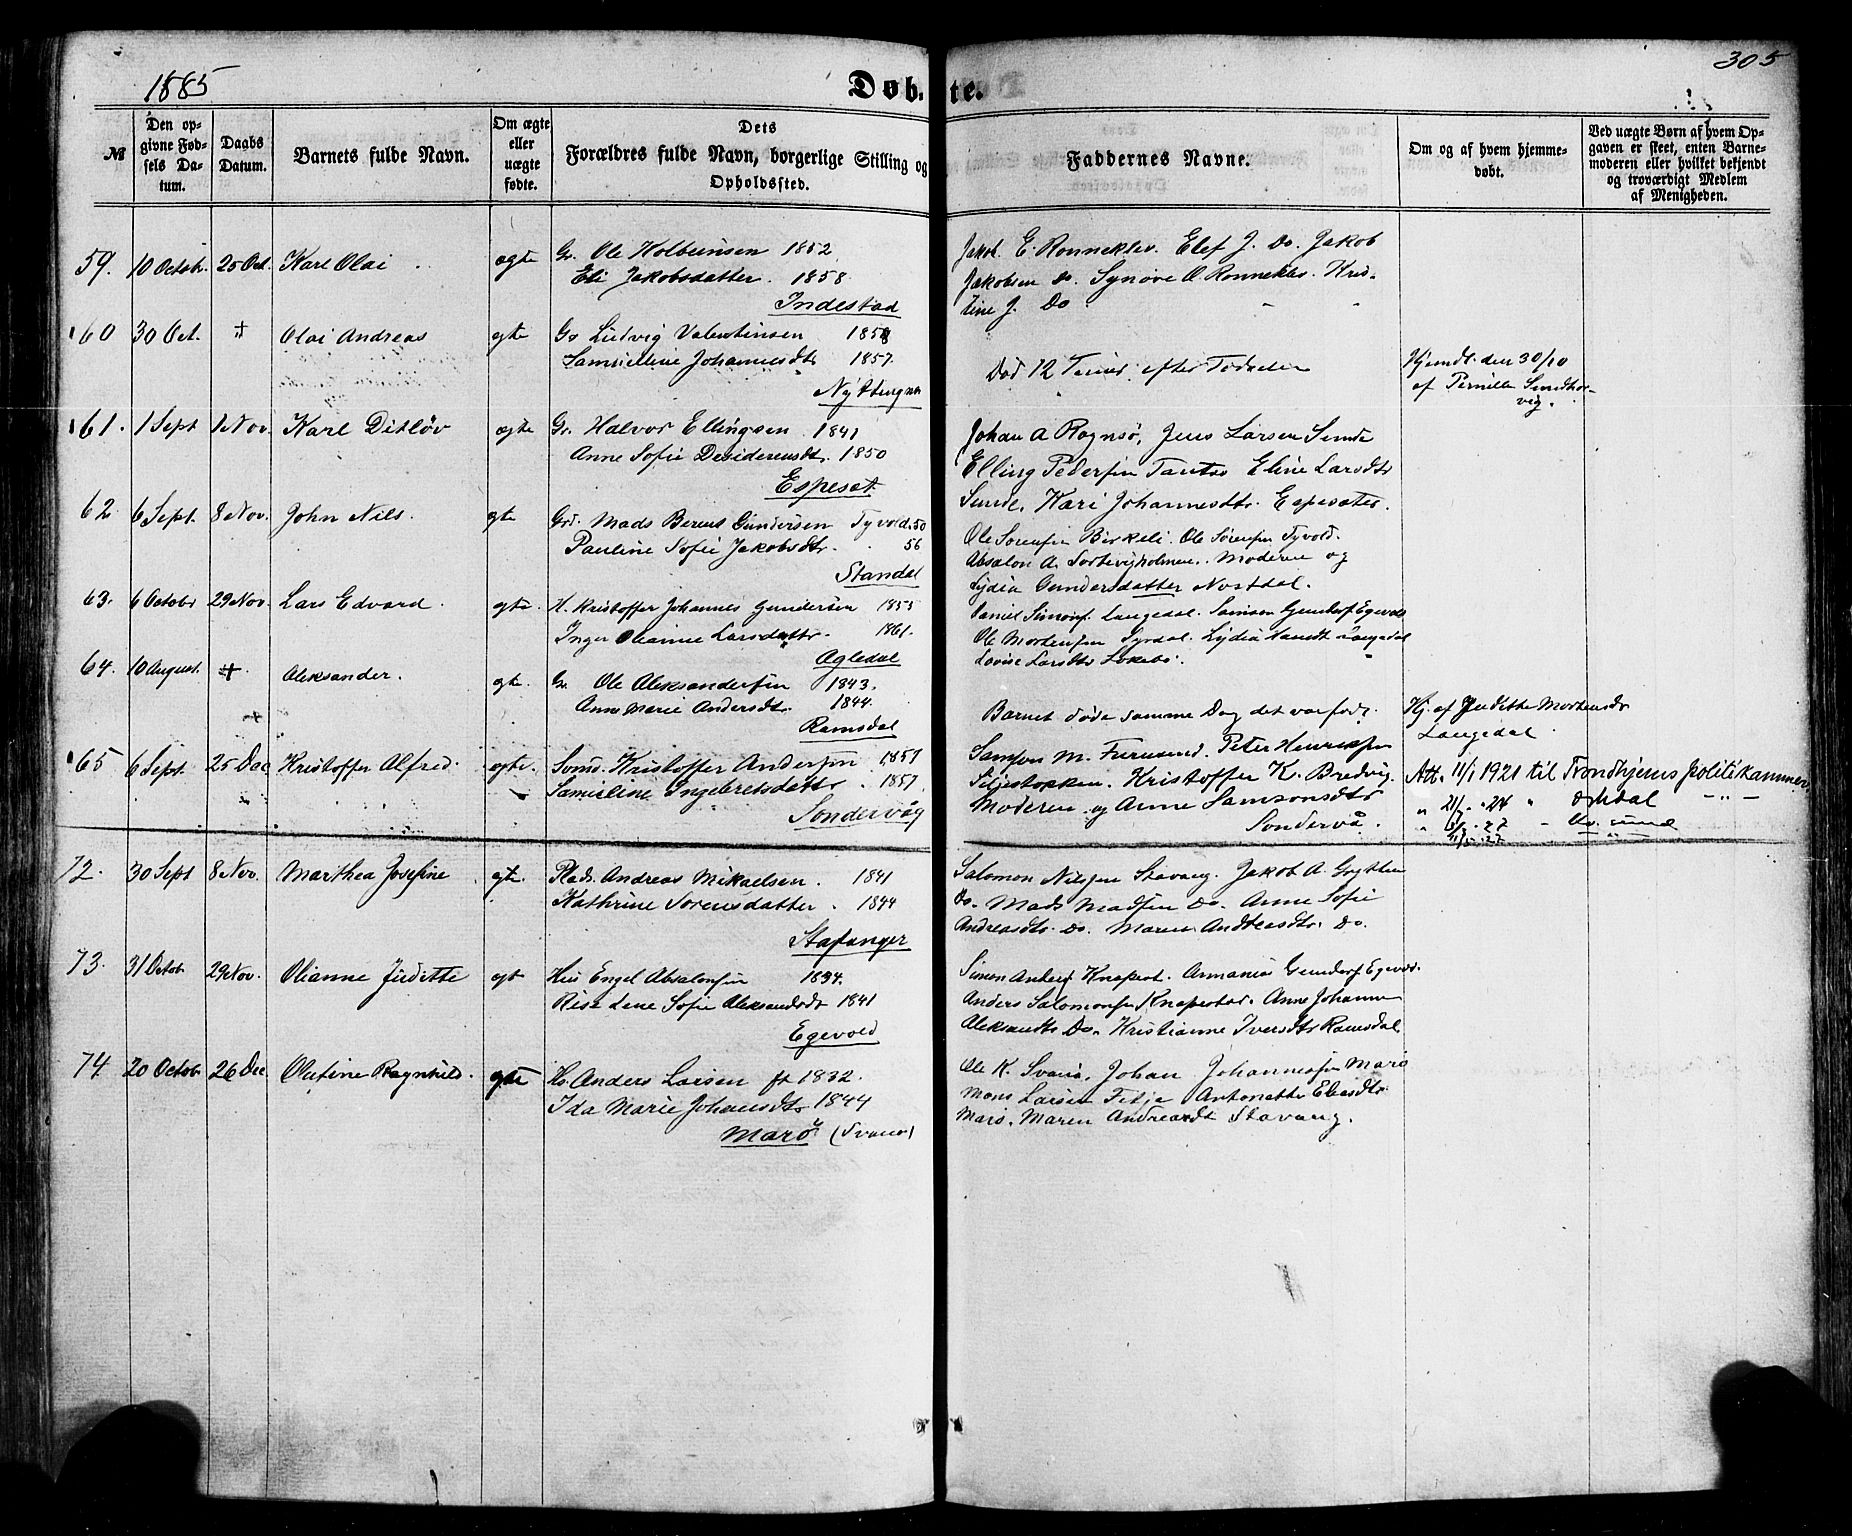 1885
305
Døb. te.
№
Den opgivne Fødsels Datum.
Daabs Datum.
Barnets fulde Navn.
Om ægte eller uægte fødte.
Dets Forældres fulde Navn, borgerlige Stilling og Opholdssted.
Faddernes Navne.
Om og af hvem hjemmedøbt.
Ved uægte Børn af hvem Opgaven er skeet, enten Barnemoderen eller hvilket bekjendt og troværdigt Medlem af Menigheden.
59. 10 Octobr. 25 Oct. Karl Olai ægte Gr. Ole Holbeinsen 1852
Eli Jakobsdatter. 1858.
Indestad
Jakob E. Ronneklev. Elef J. Do. Jakob
Jakobsen Do. Synøve O. Ronneklev. Kris-
tine J. Do
60 30 Oct. Olai Andreas ægte Gs Ludvig Valentinsen
Samueline Johannesdtr 1857.
Død 12 Timer efter Fødselen
Hjemdt. den 30/10
af Pernille Smedhor-
vig.
61. 1 Sept 1 Nov. Karl Ditløv ægte Gr. Halvor Ellingsen. 1841
Anne Sofie Desideriusdt. 1850
Espeset.
Johan A Rognsø, Jens Larsen Sunde
Elling Pedersen Eline Larsdtr
Sunde, Kari Johannesdtr. Espeseter.
62. 6 Sept. 8 Nov. John Nils. gte Grd. Mads Berent Gundersen Tyvold. 50
Pauline Sofie Jakobsdtr. 56
Standal
Ole Sørensen Birkeli. Ole Sørensen Tyvold.
Absalon A. Sortevigholmen. Moderen og
Lydia Gundersdatter Nostdal.
63. 6 Octobr 29 Nov. Lars Edvard. gte. H. Kristoffer Johannes Gundersen 1855
Inger Olianne Larsdattr. 1861.
Agledal
Daniel Simons. Langedal. Samson Gunders. Egevold
Ole Mortensen Tyrdal. Lydia Langedal
Lovise Larsdtr
64. 10 August. Aleksander. gte. Gr. Ole Aleksandersen 1843.
Anne Marie Andersdt. 1844.
Ramsdal
Barnet døde samme Dag det var født.
Hj. af Juditte Mortensdr
Langedal.
65 6 Sept. 25 Dec Kristoffer Alfred. gte. Kristoffer Andersen 1857
Samueline Ingebretsdattr. 1857.
Søndervåg
Samson M. Furusund. Peter Henriksen
Kristoffer K. Bredvig.
Moderen og Anne Samsonsdtr
Søndervå.
Att. 11/1 1921 til Trondhjems politikammer.
" 21/7 - 24 " Opdal
72. 30 Sept 8 Nov. Marthea Josefine gte. Plads. Andreas Mikaelsen. 1841
Kathrine Sorensdatter. 1844
Stafanger
Salomon Nilsen Stavang. Jakob A. Grytten
Do. Mads Madsen Do. Anne Sofie
Andreasdtr. Do. Maren Andreasdtr. Do.
73. 31 Octob 29 Nov. Olianne Juditte gt Hus Engel Absalonsen 1834.
Lene Sofie Aleksandsdt 1841
Egevold
Simon Anders. Knapset. Armania Gunders. Egevold
Anders Salomonsen Knapseter. Anne Johanna
Aleksandtr. Do. Kristianne Iversdtr Ramsdal
74. 20 Octobr 26 Dec. Olufine Ragnhild. gte Hs. Anders Larsen ft 1832.
Ida Marie Johansdtr 1844
Marø (Svanø)
Ole K. Svanø, Johan Johannessen Marø
Mons Larsen Antonette Eliasdtr
Marø. Maren Andreasdt Stavang.